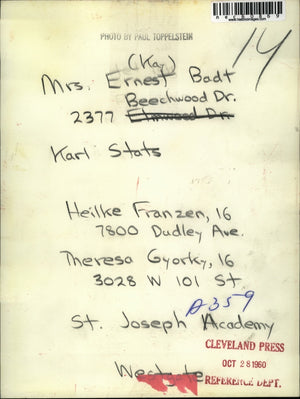 PHOTO BY PAUL TOPPELSTEIN
14
(Kay)
Mrs. Ernest Badt
Beechwood Dr.
2377 Elmwood Dr.
Karl Stats
Heilke Franzen, 16
7800 Dudley Ave.
Theresa Gyorky, 16
3028 W 101 St.
A359
St. Joseph Academy
CLEVELAND PRESS
OCT 28 1960
REFERENCE DEPT.
Westgate